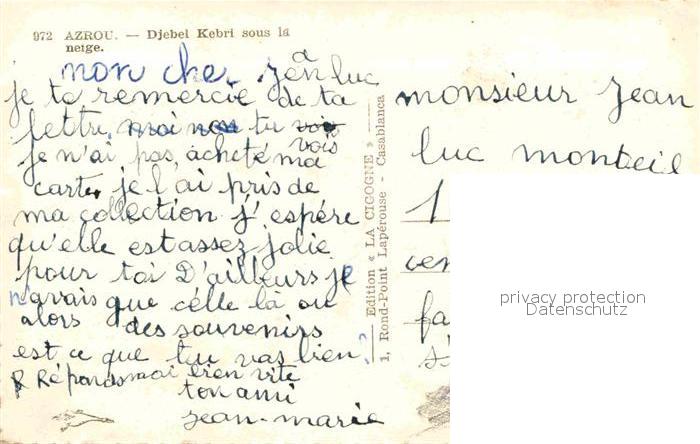 972 AZROU. — Djebel Kebri sous la
neige.
mon cher jean luc
je te remercie de ta
lettre. tu vois
je n'ai pas acheté ma
carte, je l'ai pris de
ma collection j'espére
qu'elle est assez jolie
pour toi D'ailleurs je
n'avais que celle la ou
alors des souvenirs
est ce que tu vas bien?
Réponds moi bien vite
ton ami
jean-marie
Edition « LA CIGOGNE »
1, Rond-Point Lapérouse - Casablanca
monsieur jean
luc monteil
1
privacy protection
Datenschutz